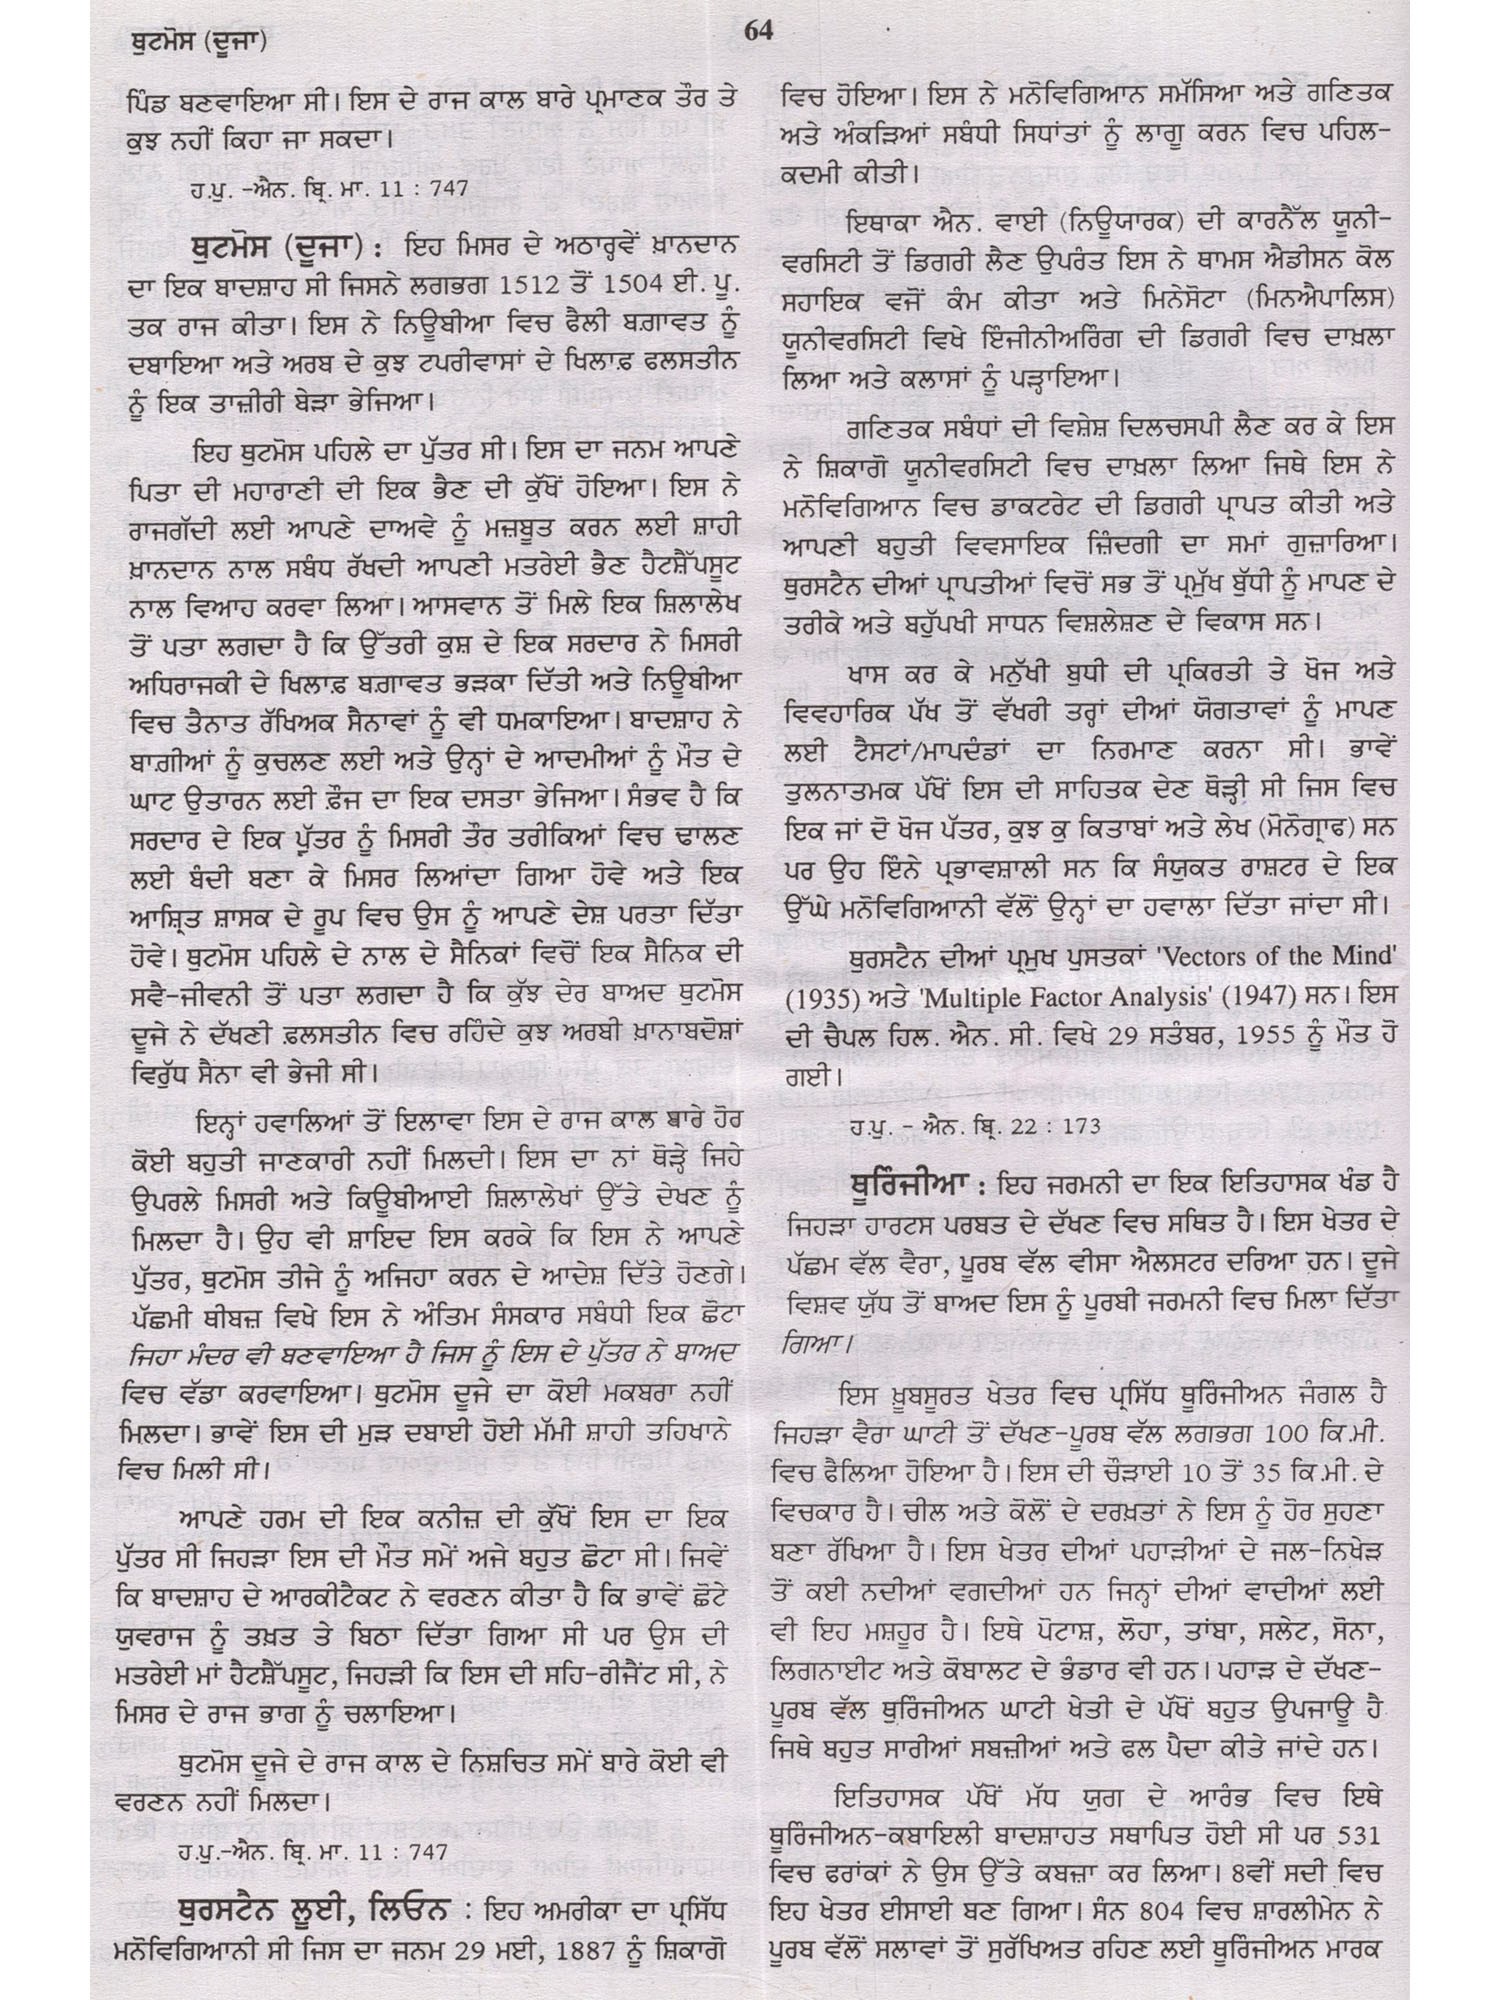 ਥੁਟਮੋਸ (ਦੂਜਾ)
64
ਪਿੰਡ ਬਣਵਾਇਆ ਸੀ। ਇਸ ਦੇ ਰਾਜ ਕਾਲ ਬਾਰੇ ਪ੍ਰਮਾਣਕ ਤੌਰ ਤੇ
ਕੁਝ ਨਹੀਂ ਕਿਹਾ ਜਾ ਸਕਦਾ।
ਹ.ਪੁ. -ਐਨ. ਬ੍ਰਿ. ਮਾ. 11 : 747
ਥੁਟਮੋਸ (ਦੂਜਾ) : ਇਹ ਮਿਸਰ ਦੇ ਅਠਾਰ੍ਹਵੇਂ ਖ਼ਾਨਦਾਨ
ਦਾ ਇਕ ਬਾਦਸ਼ਾਹ ਸੀ ਜਿਸਨੇ ਲਗਭਗ 1512 ਤੋਂ 1504 ਈ. ਪੂ.
ਤਕ ਰਾਜ ਕੀਤਾ। ਇਸ ਨੇ ਨਿਊਬੀਆ ਵਿਚ ਫੈਲੀ ਬਗ਼ਾਵਤ ਨੂੰ
ਦਬਾਇਆ ਅਤੇ ਅਰਬ ਦੇ ਕੁਝ ਟਪਰੀਵਾਸਾਂ ਦੇ ਖਿਲਾਫ਼ ਫਲਸਤੀਨ
ਨੂੰ ਇਕ ਤਾਜ਼ੀਰੀ ਬੇੜਾ ਭੇਜਿਆ।
ਇਹ ਥੁਟਮੋਸ ਪਹਿਲੇ ਦਾ ਪੁੱਤਰ ਸੀ। ਇਸ ਦਾ ਜਨਮ ਆਪਣੇ
ਪਿਤਾ ਦੀ ਮਹਾਰਾਣੀ ਦੀ ਇਕ ਭੈਣ ਦੀ ਕੁੱਖੋਂ ਹੋਇਆ। ਇਸ ਨੇ
ਰਾਜਗੱਦੀ ਲਈ ਆਪਣੇ ਦਾਅਵੇ ਨੂੰ ਮਜ਼ਬੂਤ ਕਰਨ ਲਈ ਸ਼ਾਹੀ
ਖ਼ਾਨਦਾਨ ਨਾਲ ਸਬੰਧ ਰੱਖਦੀ ਆਪਣੀ ਮਤਰੇਈ ਭੈਣ ਹੈਟਸ਼ੈੱਪਸੂਟ
ਨਾਲ ਵਿਆਹ ਕਰਵਾ ਲਿਆ। ਆਸਵਾਨ ਤੋਂ ਮਿਲੇ ਇਕ ਸ਼ਿਲਾਲੇਖ
ਤੋਂ ਪਤਾ ਲਗਦਾ ਹੈ ਕਿ ਉੱਤਰੀ ਕੁਸ਼ ਦੇ ਇਕ ਸਰਦਾਰ ਨੇ ਮਿਸਰੀ
ਅਧਿਰਾਜਕੀ ਦੇ ਖਿਲਾਫ਼ ਬਗ਼ਾਵਤ ਭੜਕਾ ਦਿੱਤੀ ਅਤੇ ਨਿਊਬੀਆ
ਵਿਚ ਤੈਨਾਤ ਰੱਖਿਅਕ ਸੈਨਾਵਾਂ ਨੂੰ ਵੀ ਧਮਕਾਇਆ। ਬਾਦਸ਼ਾਹ ਨੇ
ਬਾਗ਼ੀਆਂ ਨੂੰ ਕੁਚਲਣ ਲਈ ਅਤੇ ਉਨ੍ਹਾਂ ਦੇ ਆਦਮੀਆਂ ਨੂੰ ਮੌਤ ਦੇ
ਘਾਟ ਉਤਾਰਨ ਲਈ ਫ਼ੌਜ ਦਾ ਇਕ ਦਸਤਾ ਭੇਜਿਆ। ਸੰਭਵ ਹੈ ਕਿ
ਸਰਦਾਰ ਦੇ ਇਕ ਪੁੱਤਰ ਨੂੰ ਮਿਸਰੀ ਤੌਰ ਤਰੀਕਿਆਂ ਵਿਚ ਢਾਲਣ
ਲਈ ਬੰਦੀ ਬਣਾ ਕੇ ਮਿਸਰ ਲਿਆਂਦਾ ਗਿਆ ਹੋਵੇ ਅਤੇ ਇਕ
ਆਸ਼੍ਰਿਤ ਸ਼ਾਸਕ ਦੇ ਰੂਪ ਵਿਚ ਉਸ ਨੂੰ ਆਪਣੇ ਦੇਸ਼ ਪਰਤਾ ਦਿੱਤਾ
ਹੋਵੇ। ਥੁਟਮੋਸ ਪਹਿਲੇ ਦੇ ਨਾਲ ਦੇ ਸੈਨਿਕਾਂ ਵਿਚੋਂ ਇਕ ਸੈਨਿਕ ਦੀ
ਸਵੈ-ਜੀਵਨੀ ਤੋਂ ਪਤਾ ਲਗਦਾ ਹੈ ਕਿ ਕੁੱਝ ਦੇਰ ਬਾਅਦ ਥੁਟਮੋਸ
ਦੂਜੇ ਨੇ ਦੱਖਣੀ ਫ਼ਲਸਤੀਨ ਵਿਚ ਰਹਿੰਦੇ ਕੁਝ ਅਰਬੀ ਖ਼ਾਨਾਬਦੋਸ਼ਾਂ
ਵਿਰੁੱਧ ਸੈਨਾ ਵੀ ਭੇਜੀ ਸੀ।
ਇਨ੍ਹਾਂ ਹਵਾਲਿਆਂ ਤੋਂ ਇਲਾਵਾ ਇਸ ਦੇ ਰਾਜ ਕਾਲ ਬਾਰੇ ਹੋਰ
ਕੋਈ ਬਹੁਤੀ ਜਾਣਕਾਰੀ ਨਹੀਂ ਮਿਲਦੀ। ਇਸ ਦਾ ਨਾਂ ਥੋੜ੍ਹੇ ਜਿਹੇ
ਉਪਰਲੇ ਮਿਸਰੀ ਅਤੇ ਕਿਊਬੀਆਈ ਸ਼ਿਲਾਲੇਖਾਂ ਉੱਤੇ ਦੇਖਣ ਨੂੰ
ਮਿਲਦਾ ਹੈ। ਉਹ ਵੀ ਸ਼ਾਇਦ ਇਸ ਕਰਕੇ ਕਿ ਇਸ ਨੇ ਆਪਣੇ
ਪੁੱਤਰ, ਥੁਟਮੋਸ ਤੀਜੇ ਨੂੰ ਅਜਿਹਾ ਕਰਨ ਦੇ ਆਦੇਸ਼ ਦਿੱਤੇ ਹੋਣਗੇ।
ਪੱਛਮੀ ਥੀਬਜ਼ ਵਿਖੇ ਇਸ ਨੇ ਅੰਤਿਮ ਸੰਸਕਾਰ ਸਬੰਧੀ ਇਕ ਛੋਟਾ
ਜਿਹਾ ਮੰਦਰ ਵੀ ਬਣਵਾਇਆ ਹੈ ਜਿਸ ਨੂੰ ਇਸ ਦੇ ਪੁੱਤਰ ਨੇ ਬਾਅਦ
ਵਿਚ ਵੱਡਾ ਕਰਵਾਇਆ। ਥੁਟਮੋਸ ਦੂਜੇ ਦਾ ਕੋਈ ਮਕਬਰਾ ਨਹੀਂ
ਮਿਲਦਾ। ਭਾਵੇਂ ਇਸ ਦੀ ਮੁੜ ਦਬਾਈ ਹੋਈ ਮੱਮੀ ਸ਼ਾਹੀ ਤਹਿਖਾਨੇ
ਵਿਚ ਮਿਲੀ ਸੀ।
ਆਪਣੇ ਹਰਮ ਦੀ ਇਕ ਕਨੀਜ਼ ਦੀ ਕੁੱਖੋਂ ਇਸ ਦਾ ਇਕ
ਪੁੱਤਰ ਸੀ ਜਿਹੜਾ ਇਸ ਦੀ ਮੌਤ ਸਮੇਂ ਅਜੇ ਬਹੁਤ ਛੋਟਾ ਸੀ। ਜਿਵੇਂ
ਕਿ ਬਾਦਸ਼ਾਹ ਦੇ ਆਰਕੀਟੈਕਟ ਨੇ ਵਰਣਨ ਕੀਤਾ ਹੈ ਕਿ ਭਾਵੇਂ ਛੋਟੇ
ਯੁਵਰਾਜ ਨੂੰ ਤਖ਼ਤ ਤੇ ਬਿਠਾ ਦਿੱਤਾ ਗਿਆ ਸੀ ਪਰ ਉਸ ਦੀ
ਮਤਰੇਈ ਮਾਂ ਹੈਟਸ਼ੈੱਪਸੂਟ, ਜਿਹੜੀ ਕਿ ਇਸ ਦੀ ਸਹਿ-ਰੀਜੈਂਟ ਸੀ, ਨੇ
ਮਿਸਰ ਦੇ ਰਾਜ ਭਾਗ ਨੂੰ ਚਲਾਇਆ।
ਥੁਟਮੋਸ ਦੂਜੇ ਦੇ ਰਾਜ ਕਾਲ ਦੇ ਨਿਸ਼ਚਿਤ ਸਮੇਂ ਬਾਰੇ ਕੋਈ ਵੀ
ਵਰਣਨ ਨਹੀਂ ਮਿਲਦਾ।
ਹ.ਪੁ.-ਐਨ. ਬ੍ਰਿ. ਮਾ. 11 : 747
ਥੁਰਸਟੈਨ ਲੂਈ, ਲਿਓਨ : ਇਹ ਅਮਰੀਕਾ ਦਾ ਪ੍ਰਸਿੱਧ
ਮਨੋਵਿਗਿਆਨੀ ਸੀ ਜਿਸ ਦਾ ਜਨਮ 29 ਮਈ, 1887 ਨੂੰ ਸ਼ਿਕਾਗੋ
ਵਿਚ ਹੋਇਆ। ਇਸ ਨੇ ਮਨੋਵਿਗਿਆਨ ਸਮੱਸਿਆ ਅਤੇ ਗਣਿਤਕ
ਅਤੇ ਅੰਕੜਿਆਂ ਸਬੰਧੀ ਸਿਧਾਂਤਾਂ ਨੂੰ ਲਾਗੂ ਕਰਨ ਵਿਚ ਪਹਿਲ-
ਕਦਮੀ ਕੀਤੀ।
ਇਥਾਕਾ ਐਨ. ਵਾਈ (ਨਿਊਯਾਰਕ) ਦੀ ਕਾਰਨੈੱਲ ਯੂਨੀ-
ਵਰਸਿਟੀ ਤੋਂ ਡਿਗਰੀ ਲੈਣ ਉਪਰੰਤ ਇਸ ਨੇ ਥਾਮਸ ਐਡੀਸਨ ਕੋਲ
ਸਹਾਇਕ ਵਜੋਂ ਕੰਮ ਕੀਤਾ ਅਤੇ ਮਿਨੇਸੋਟਾ (ਮਿਨਐਪਾਲਿਸ)
ਯੂਨੀਵਰਸਿਟੀ ਵਿਖੇ ਇੰਜੀਨੀਅਰਿੰਗ ਦੀ ਡਿਗਰੀ ਵਿਚ ਦਾਖ਼ਲਾ
ਲਿਆ ਅਤੇ ਕਲਾਸਾਂ ਨੂੰ ਪੜ੍ਹਾਇਆ।
ਗਣਿਤਕ ਸਬੰਧਾਂ ਦੀ ਵਿਸ਼ੇਸ਼ ਦਿਲਚਸਪੀ ਲੈਣ ਕਰ ਕੇ ਇਸ
ਨੇ ਸ਼ਿਕਾਗੋ ਯੂਨੀਵਰਸਿਟੀ ਵਿਚ ਦਾਖ਼ਲਾ ਲਿਆ ਜਿਥੇ ਇਸ ਨੇ
ਮਨੋਵਿਗਿਆਨ ਵਿਚ ਡਾਕਟਰੇਟ ਦੀ ਡਿਗਰੀ ਪ੍ਰਾਪਤ ਕੀਤੀ ਅਤੇ
ਆਪਣੀ ਬਹੁਤੀ ਵਿਵਸਾਇਕ ਜ਼ਿੰਦਗੀ ਦਾ ਸਮਾਂ ਗੁਜ਼ਾਰਿਆ।
ਥੁਰਸਟੈਨ ਦੀਆਂ ਪ੍ਰਾਪਤੀਆਂ ਵਿਚੋਂ ਸਭ ਤੋਂ ਪ੍ਰਮੁੱਖ ਬੁੱਧੀ ਨੂੰ ਮਾਪਣ ਦੇ
ਤਰੀਕੇ ਅਤੇ ਬਹੁੱਪਖੀ ਸਾਧਨ ਵਿਸ਼ਲੇਸ਼ਣ ਦੇ ਵਿਕਾਸ ਸਨ।
ਖਾਸ ਕਰ ਕੇ ਮਨੁੱਖੀ ਬੁਧੀ ਦੀ ਪ੍ਰਕਿਰਤੀ ਤੇ ਖੋਜ ਅਤੇ
ਵਿਵਹਾਰਿਕ ਪੱਖ ਤੋਂ ਵੱਖਰੀ ਤਰ੍ਹਾਂ ਦੀਆਂ ਯੋਗਤਾਵਾਂ ਨੂੰ ਮਾਪਣ
ਲਈ ਟੈਸਟਾਂ/ਮਾਪਦੰਡਾਂ ਦਾ ਨਿਰਮਾਣ ਕਰਨਾ ਸੀ। ਭਾਵੇਂ
ਤੁਲਨਾਤਮਕ ਪੱਖੋਂ ਇਸ ਦੀ ਸਾਹਿਤਕ ਦੇਣ ਥੋੜ੍ਹੀ ਸੀ ਜਿਸ ਵਿਚ
ਇਕ ਜਾਂ ਦੋ ਖੋਜ ਪੱਤਰ, ਕੁਝ ਕੁ ਕਿਤਾਬਾਂ ਅਤੇ ਲੇਖ (ਮੋਨੋਗ੍ਰਾਫ) ਸਨ
ਪਰ ਉਹ ਇੰਨੇ ਪ੍ਰਭਾਵਸ਼ਾਲੀ ਸਨ ਕਿ ਸੰਯੁਕਤ ਰਾਸ਼ਟਰ ਦੇ ਇਕ
ਉੱਘੇ ਮਨੋਵਿਗਿਆਨੀ ਵੱਲੋਂ ਉਨ੍ਹਾਂ ਦਾ ਹਵਾਲਾ ਦਿੱਤਾ ਜਾਂਦਾ ਸੀ।
ਥੁਰਸਟੈਨ ਦੀਆਂ ਪ੍ਰਮੁਖ ਪੁਸਤਕਾਂ 'Vectors of the Mind'
(1935) ਅਤੇ 'Multiple Factor Analysis' (1947) ਸਨ। ਇਸ
ਦੀ ਚੈਪਲ ਹਿਲ. ਐਨ. ਸੀ. ਵਿਖੇ 29 ਸਤੰਬਰ, 1955 ਨੂੰ ਮੌਤ ਹੋ
ਗਈ।
ਹ.ਪੁ. - ਐਨ. ਬ੍ਰਿ. 22 : 173
ਥੂਰਿੰਜੀਆ : ਇਹ ਜਰਮਨੀ ਦਾ ਇਕ ਇਤਿਹਾਸਕ ਖੰਡ ਹੈ
ਜਿਹੜਾ ਹਾਰਟਸ ਪਰਬਤ ਦੇ ਦੱਖਣ ਵਿਚ ਸਥਿਤ ਹੈ। ਇਸ ਖੇਤਰ ਦੇ
ਪੱਛਮ ਵੱਲ ਵੈਰਾ, ਪੂਰਬ ਵੱਲ ਵੀਸਾ ਐਲਸਟਰ ਦਰਿਆ ਹਨ। ਦੂਜੇ
ਵਿਸ਼ਵ ਯੁੱਧ ਤੋਂ ਬਾਅਦ ਇਸ ਨੂੰ ਪੂਰਬੀ ਜਰਮਨੀ ਵਿਚ ਮਿਲਾ ਦਿੱਤਾ
ਗਿਆ।
ਇਸ ਖ਼ੂਬਸੂਰਤ ਖੇਤਰ ਵਿਚ ਪ੍ਰਸਿੱਧ ਥੂਰਿੰਜੀਅਨ ਜੰਗਲ ਹੈ
ਜਿਹੜਾ ਵੈਰਾ ਘਾਟੀ ਤੋਂ ਦੱਖਣ-ਪੂਰਬ ਵੱਲ ਲਗਭਗ 100 ਕਿ.ਮੀ.
ਵਿਚ ਫੈਲਿਆ ਹੋਇਆ ਹੈ। ਇਸ ਦੀ ਚੌੜਾਈ 10 ਤੋਂ 35 ਕਿ.ਮੀ. ਦੇ
ਵਿਚਕਾਰ ਹੈ। ਚੀਲ ਅਤੇ ਕੋਲੋਂ ਦੇ ਦਰਖ਼ਤਾਂ ਨੇ ਇਸ ਨੂੰ ਹੋਰ ਸੁਹਣਾ
ਬਣਾ ਰੱਖਿਆ ਹੈ। ਇਸ ਖੇਤਰ ਦੀਆਂ ਪਹਾੜੀਆਂ ਦੇ ਜਲ-ਨਿਖੇੜ
ਤੋਂ ਕਈ ਨਦੀਆਂ ਵਗਦੀਆਂ ਹਨ ਜਿਨ੍ਹਾਂ ਦੀਆਂ ਵਾਦੀਆਂ ਲਈ
ਵੀ ਇਹ ਮਸ਼ਹੂਰ ਹੈ। ਇਥੇ ਪੋਟਾਸ਼, ਲੋਹਾ, ਤਾਂਬਾ, ਸਲੇਟ, ਸੋਨਾ,
ਲਿਗਨਾਈਟ ਅਤੇ ਕੋਬਾਲਟ ਦੇ ਭੰਡਾਰ ਵੀ ਹਨ। ਪਹਾੜ ਦੇ ਦੱਖਣ-
ਪੂਰਬ ਵੱਲ ਥੁਰਿੰਜੀਅਨ ਘਾਟੀ ਖੇਤੀ ਦੇ ਪੱਖੋਂ ਬਹੁਤ ਉਪਜਾਊ ਹੈ
ਜਿਥੇ ਬਹੁਤ ਸਾਰੀਆਂ ਸਬਜ਼ੀਆਂ ਅਤੇ ਫਲ ਪੈਦਾ ਕੀਤੇ ਜਾਂਦੇ ਹਨ।
ਇਤਿਹਾਸਕ ਪੱਖੋਂ ਮੱਧ ਯੁਗ ਦੇ ਆਰੰਭ ਵਿਚ ਇਥੇ
ਥੂਰਿੰਜੀਅਨ-ਕਬਾਇਲੀ ਬਾਦਸ਼ਾਹਤ ਸਥਾਪਿਤ ਹੋਈ ਸੀ ਪਰ 531
ਵਿਚ ਫਰਾਂਕਾਂ ਨੇ ਉਸ ਉੱਤੇ ਕਬਜ਼ਾ ਕਰ ਲਿਆ। 8ਵੀਂ ਸਦੀ ਵਿਚ
ਇਹ ਖੇਤਰ ਈਸਾਈ ਬਣ ਗਿਆ। ਸੰਨ 804 ਵਿਚ ਸ਼ਾਰਲੀਮੇਨ ਨੇ
ਪੂਰਬ ਵੱਲੋਂ ਸਲਾਵਾਂ ਤੋਂ ਸੁਰੱਖਿਅਤ ਰਹਿਣ ਲਈ ਥੂਰਿੰਜੀਅਨ ਮਾਰਕ